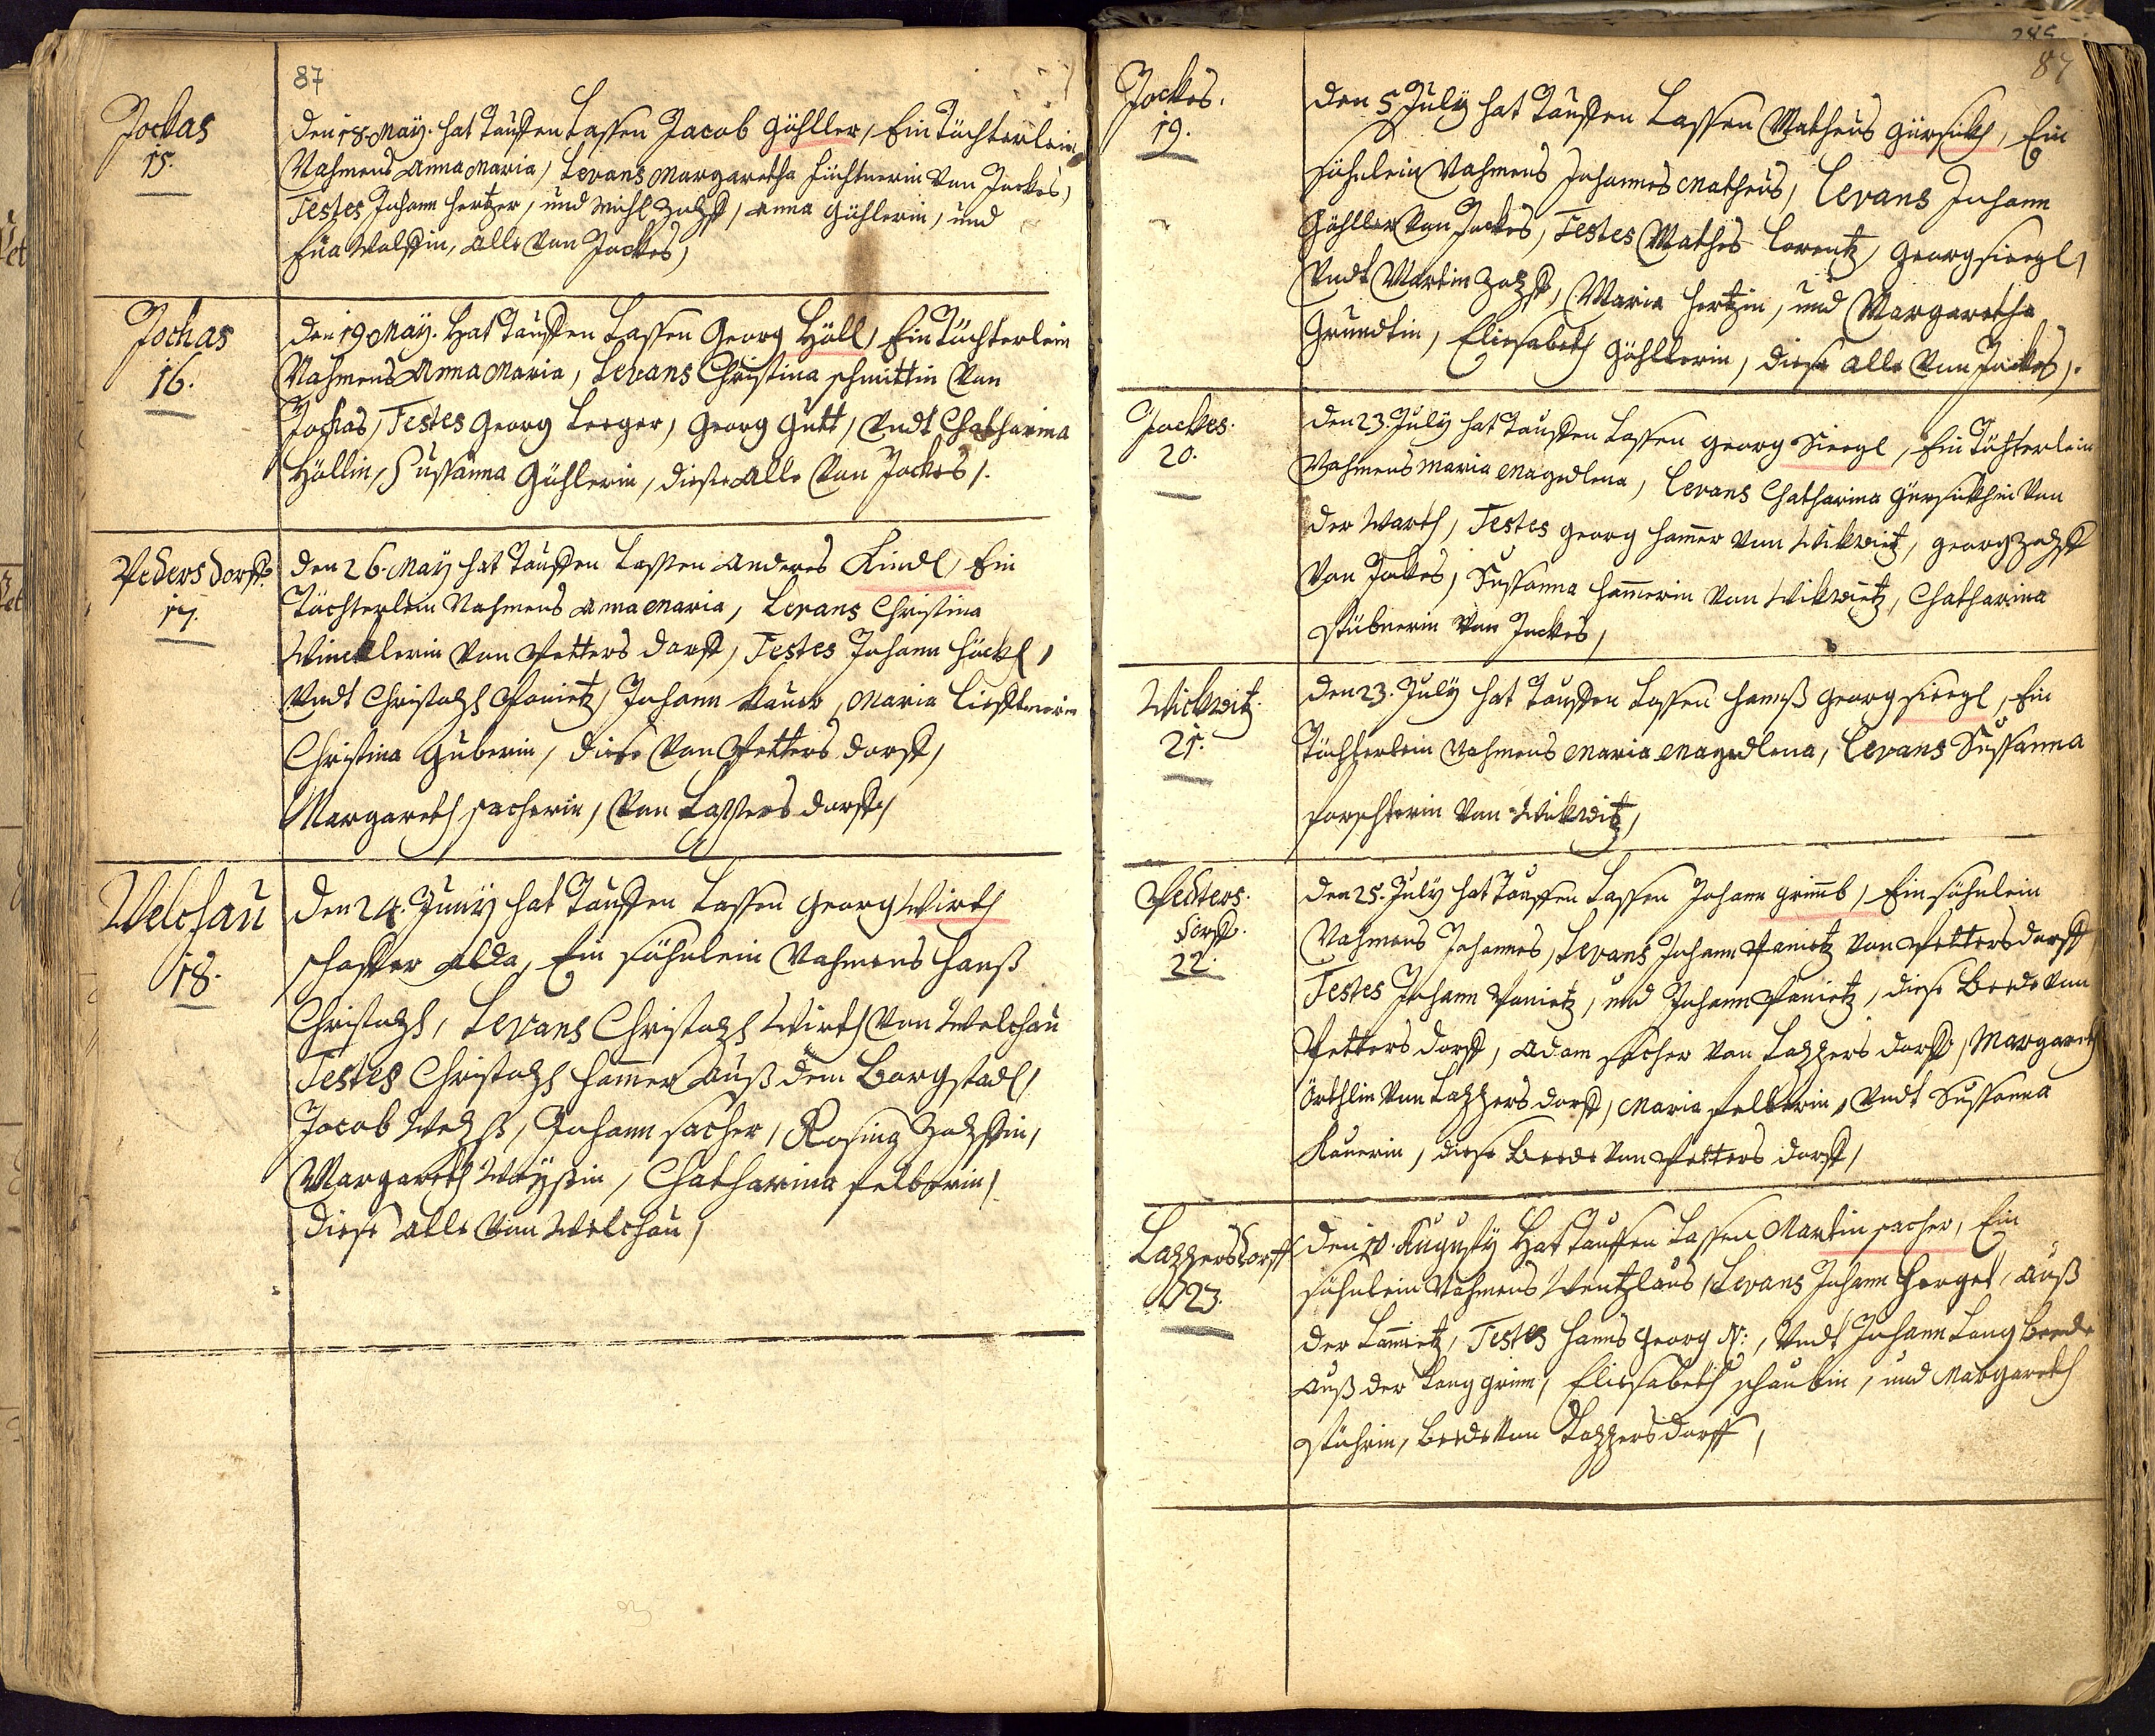 87
Jockas
15.
den 18 Maÿ. hat Tauffen Lassen Jacob Göhller, Ein Töchterlein
Nahmens Anna Maria, Levans Margaretha Füchtnerin Von Jockes,
Testes Johann Hertzer, und Michl, Anna Göhlerin, und
Eua, alle Von Jockes,
Jockas
16.
den 19 Maÿ. Hat Tauffen Lassen Georg Höll, Ein Töchterlein
Nahmens Anna Maria, Levans Christina Schmittin Von
Jockas, Testes Georg Leeger, Georg Gutt, Vndt Chatharina
Höllin, Sussanna Göhlerin, diese Alle Von Jockes.
Peders dorff
17.
den 26. Maÿ hat Tauffen Lassen Anderes Kindl, Ein
Töchterlein Nahmens Anna Maria, Levans Christina
Wincklerin Von Petters dorff, Testes Johann Höckl,
Vndt Christoph Panietz, Johann Kauer, Maria
Christina Huberin, diese Von Petters dorff,
Margareth Sacherin, Von Lappers dorff,
Welchau
18.
den 24. Junÿ hat Tauffen Lassen Georg Wirth
schaffer Alda, Ein Söhnlein Nahmens Hanß
Christoph, Levans Christoph Wirth Von Welchau
Testes Christoph Hamer Auß dem Borgstadl,
Jacob, Johann Sacher, Rosina,
Margareth, Chatharina Felberin,
diese Alle Von Welchau,
285
87
Jockes.
19.
den 5 Julÿ hat Tauffen Lassen Matheus Gürsich, Ein
Söhnlein Nahmens Johannes Matheus, Levans Johann
Göhller Von Jockes, Testes Mathes Lorentz, Georg Siegl,
Vndt Martin, Maria Hertzin, und Margaretha
Grundtin, Eliesabeth Göhllerin, diese alle Von Jockes,
Jockes.
20.
den 23. Julÿ hat Tauffen Lassen Georg Siegl, Ein Töchterlein
Nahmens Maria Magedlena, Levans Chatharina Von
der Warth, Testes Georg Hamer Von Wikwitz, Georg
Von Jockes, Sussanna Hamerin Von Wikwitz, Chatharina
Stübnerin Von Jockes,
Wickwitz.
21.
den 23. Julÿ hat Tauffen Lassen Hanß Georg Siegl, Ein
Töchterlein Nahmens Maria Magedlena, Levans Sussanna
Forschterin Von Wikwitz,
Petters.
dorff.
22.
den 25. Julÿ hat Tauffen Lassen Johann Grimb, Ein Söhnlein
Nahmens Johannes, Levans Johann Panietz Von Petters dorff
Testes Johann Panietz, und Johann Panietz, diese Beede Von
Petters dorff, Adam Sacher Von Lappers dorff, Margareth
Örthlin Von Lappers dorff, Maria Felberin, Vndt Sussanna
Kauerin, diese Beede Von Petters dorff,
Lappersdorff
23.
den 10. Augustÿ Hat Tauffen Lassen Martin Sacher, Ein
Söhnlein Nahmens Wentzlaus, Levans Johann Hergel, Auß
der Lamietz, Testes Hanns Georg N:, Vndt Johann Lang Beede
Auß der Lang grün, Eliesabeth Schaubin, und Margareth
Stöhrin, Beede Von Lappersdorff,